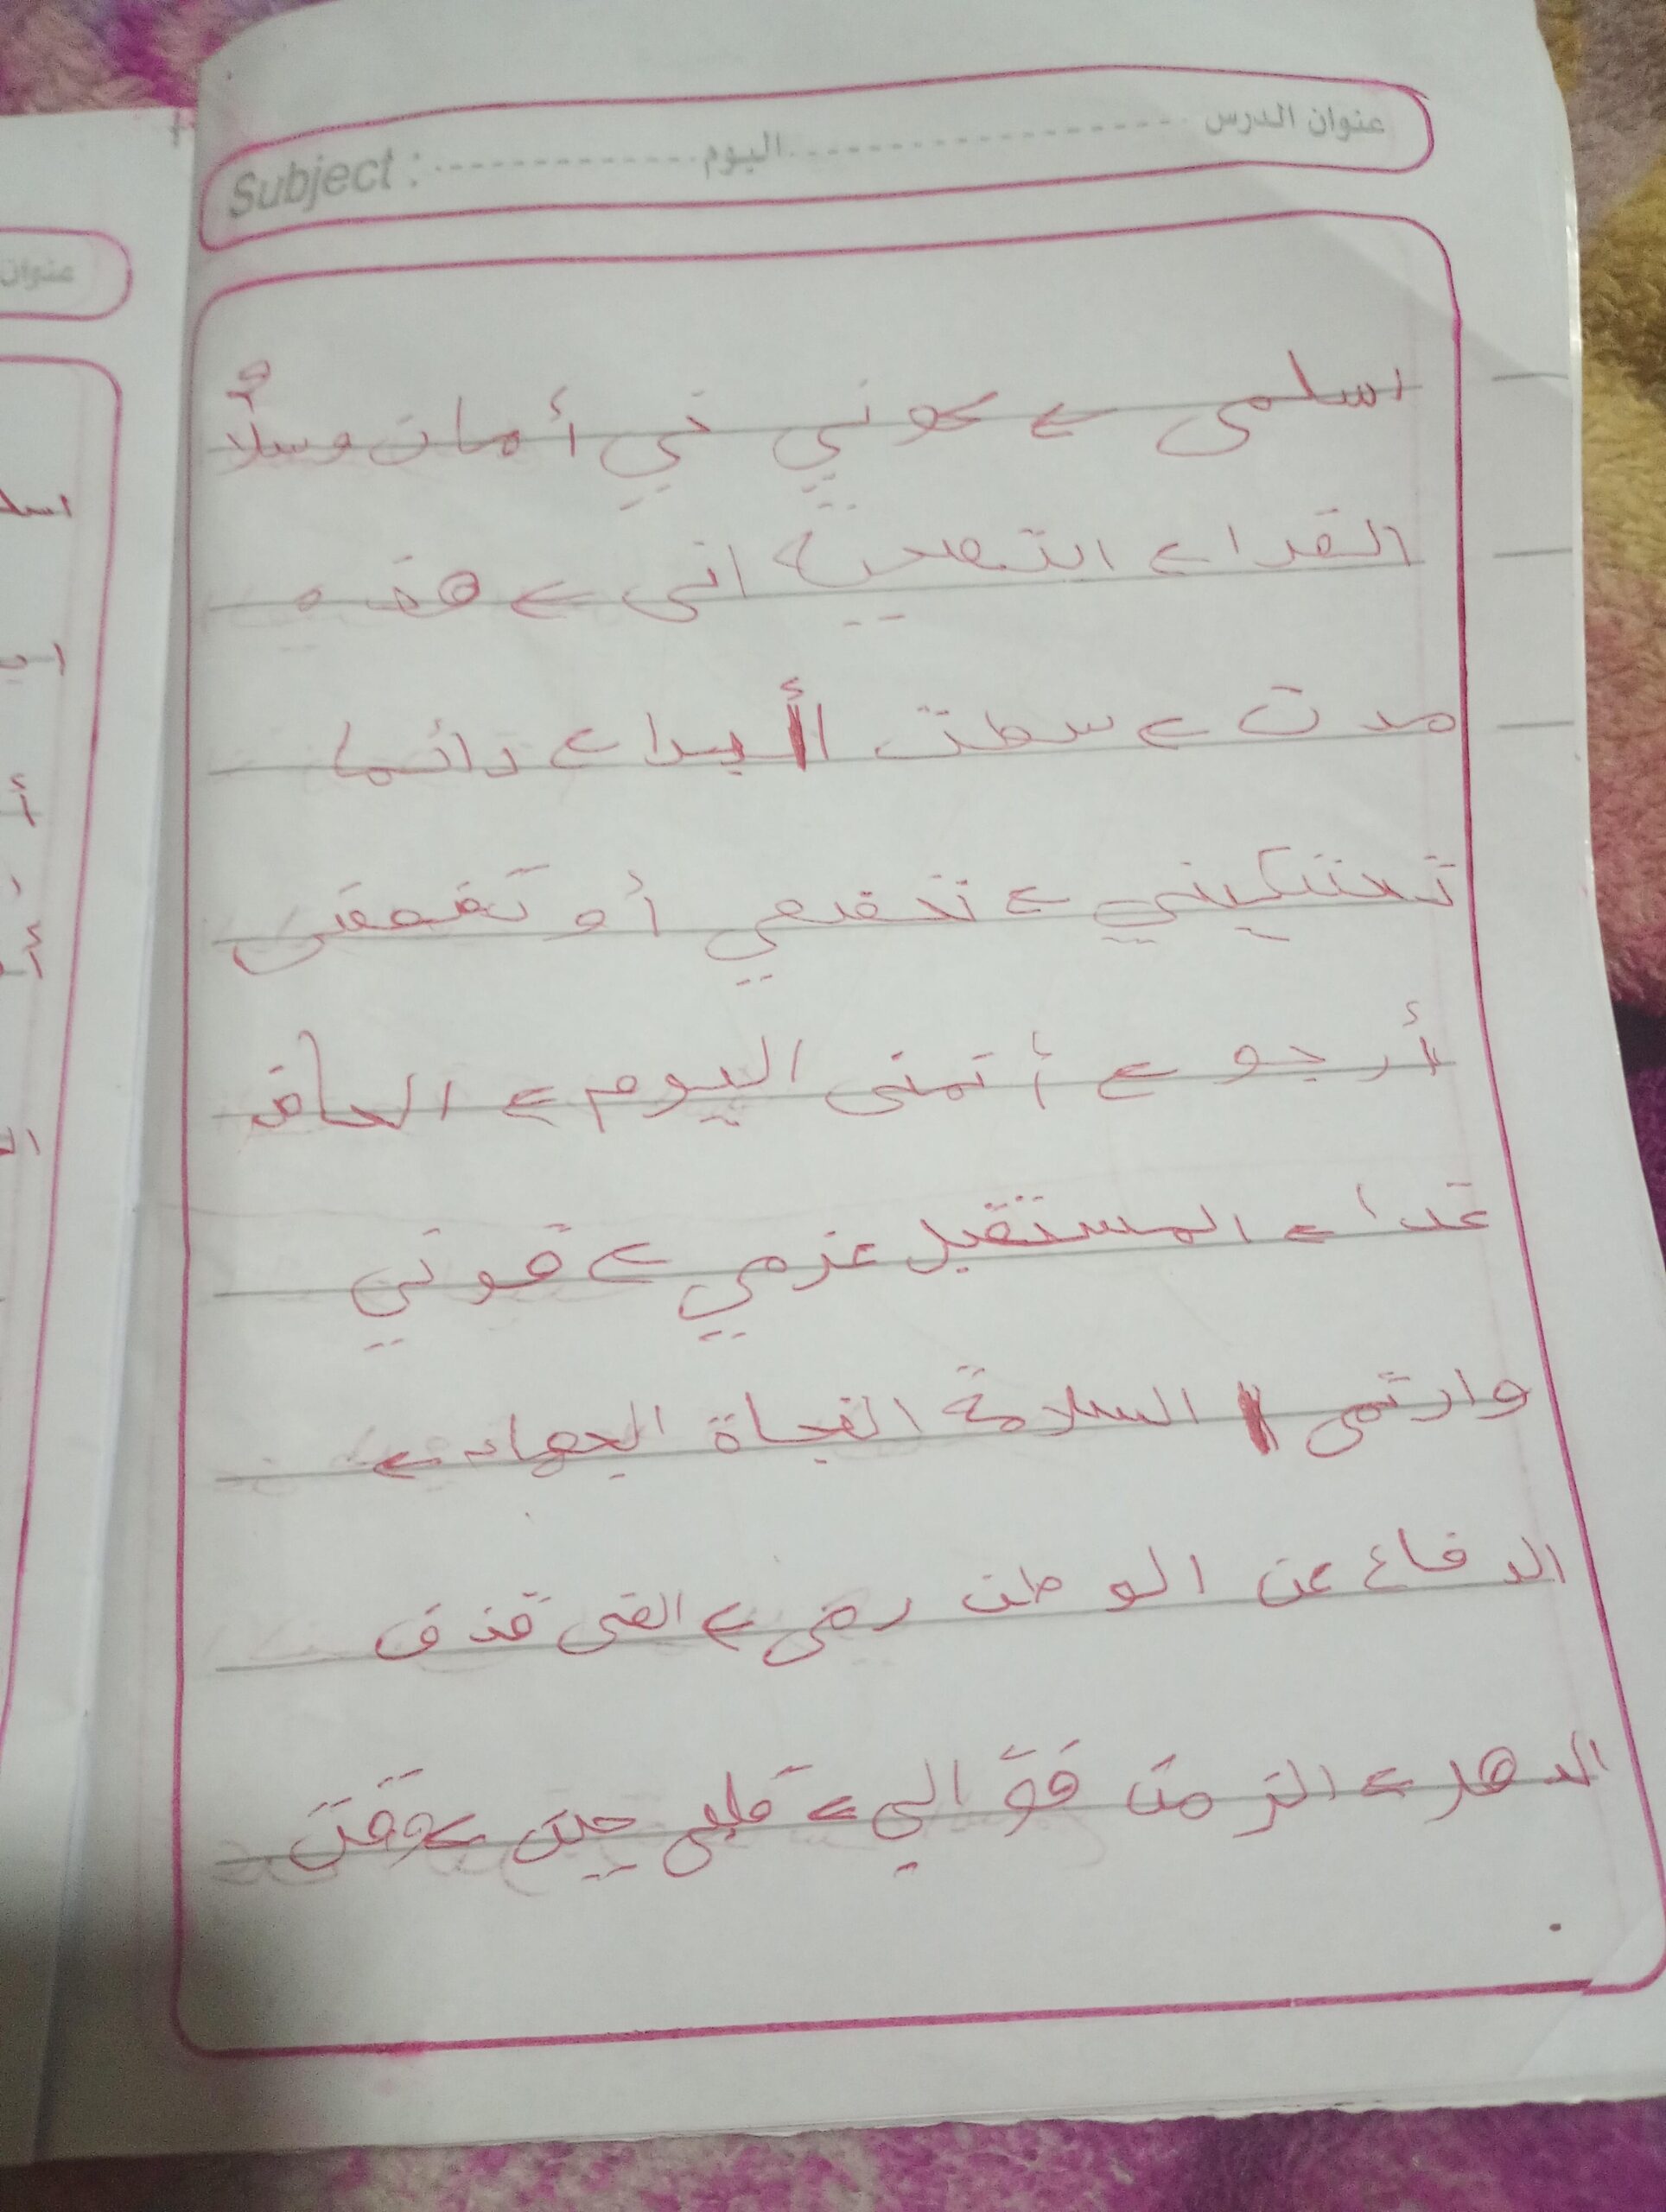 عنوان الدرس ..................... اليوم ............... Subject :
اسلمى ے كوني في أمان وسلاٌ
الفدا ے التضحية انى ے هذه
مدن ے سطن أبدا ے دائما
تستكيني ے تخضعي أو تغمض
أرجو ے أتمنى اليوم ے الحاضر
غدا ے المستقبل عزمي ے قوتي
وارتمى السلامة النجاة الجهاد ے
الدفاع عن الوطن رمى ے القى قذف
الدهر ے الزمن فؤالي ے قلبى حين ے وقت
عنوان